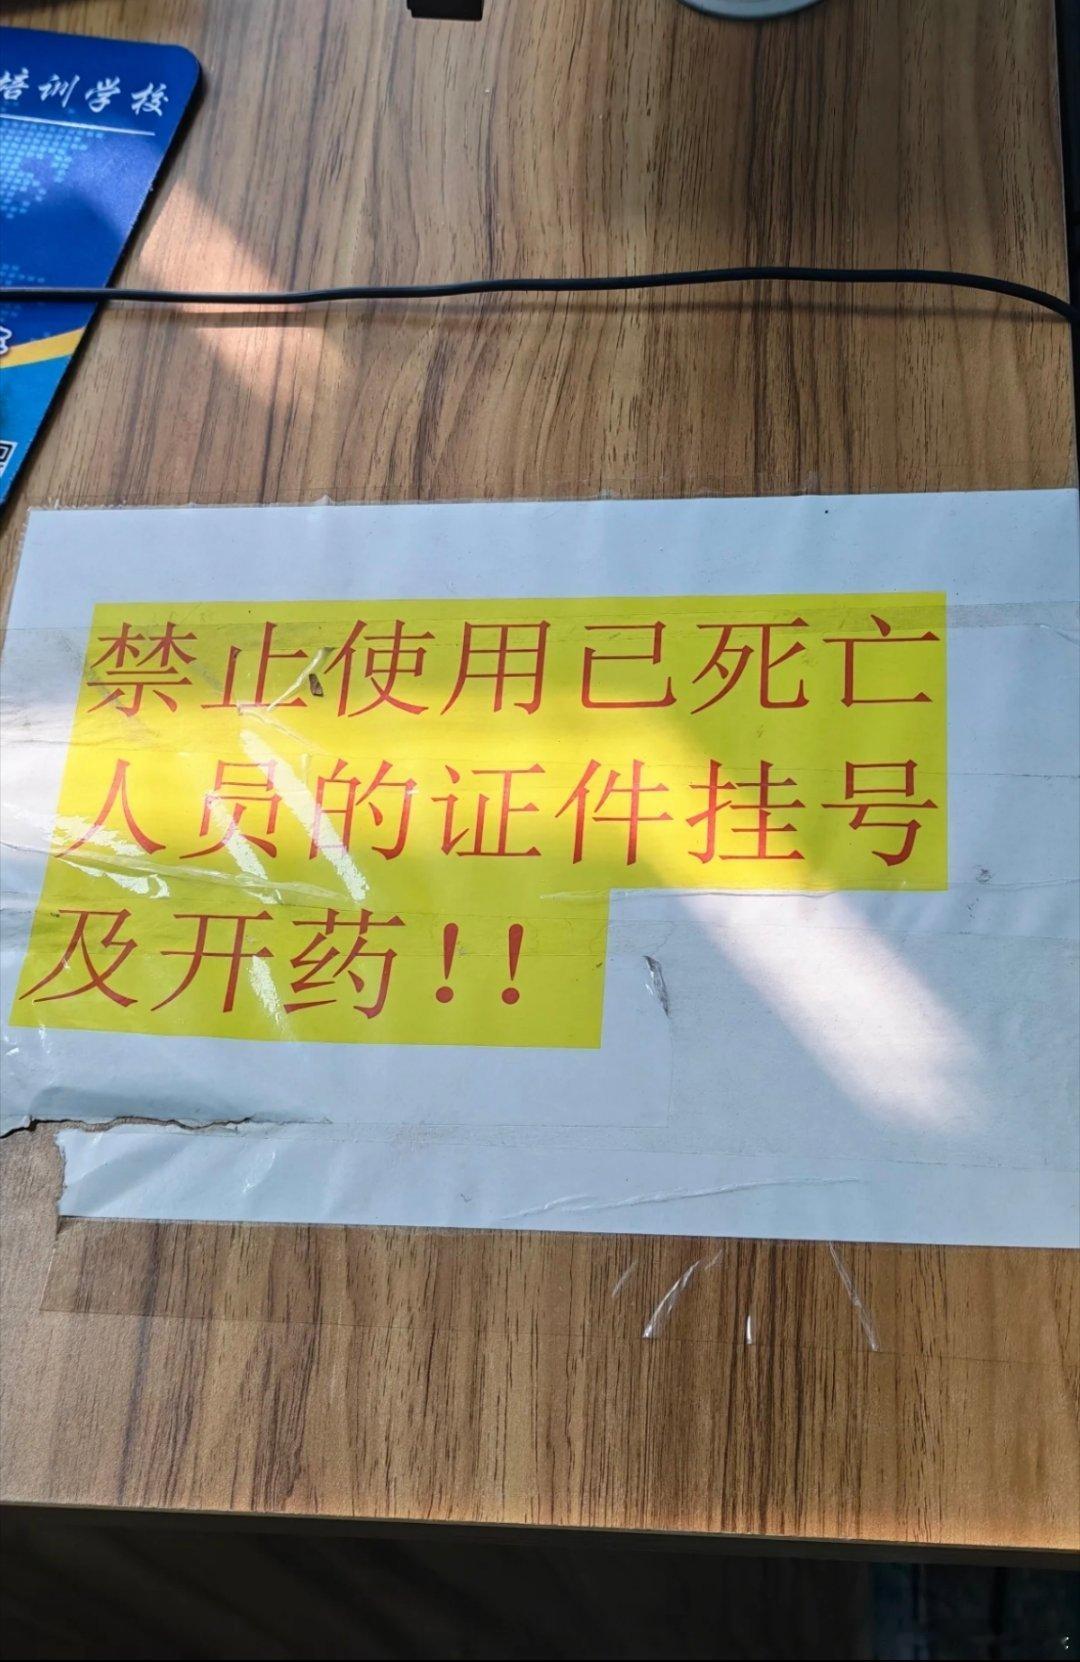 培训学校
禁止使用已死亡
人员的证件挂号
及开药!!